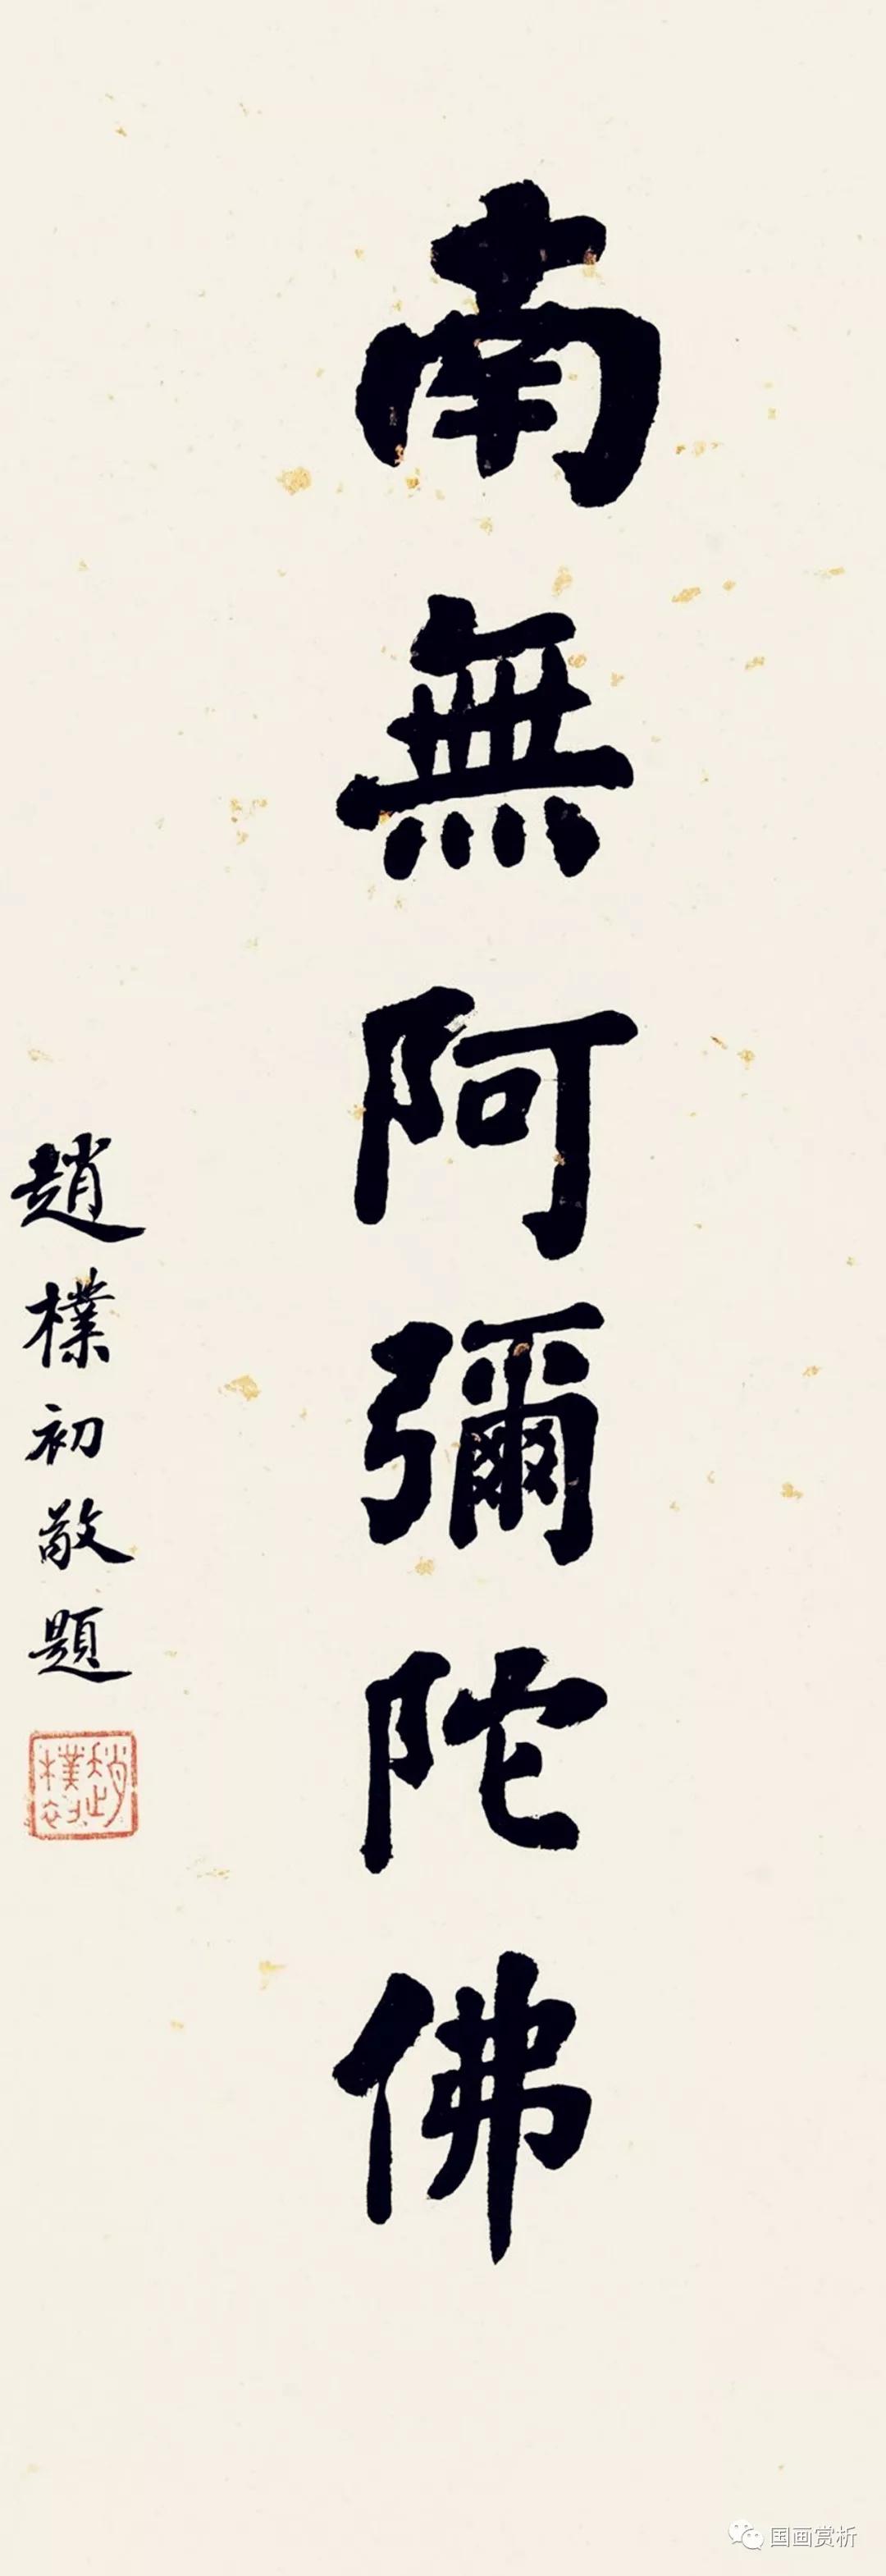 南無阿彌陀佛
趙樸初敬題
趙樸初
国画赏析